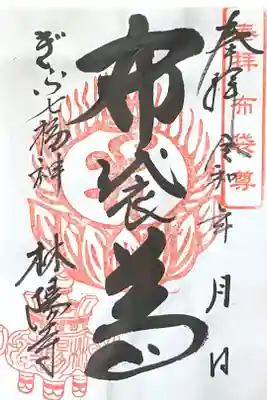 奉拝 令和 年 月 日
布袋尊
ぎふ七福神
林陽寺
奉拝布袋尊